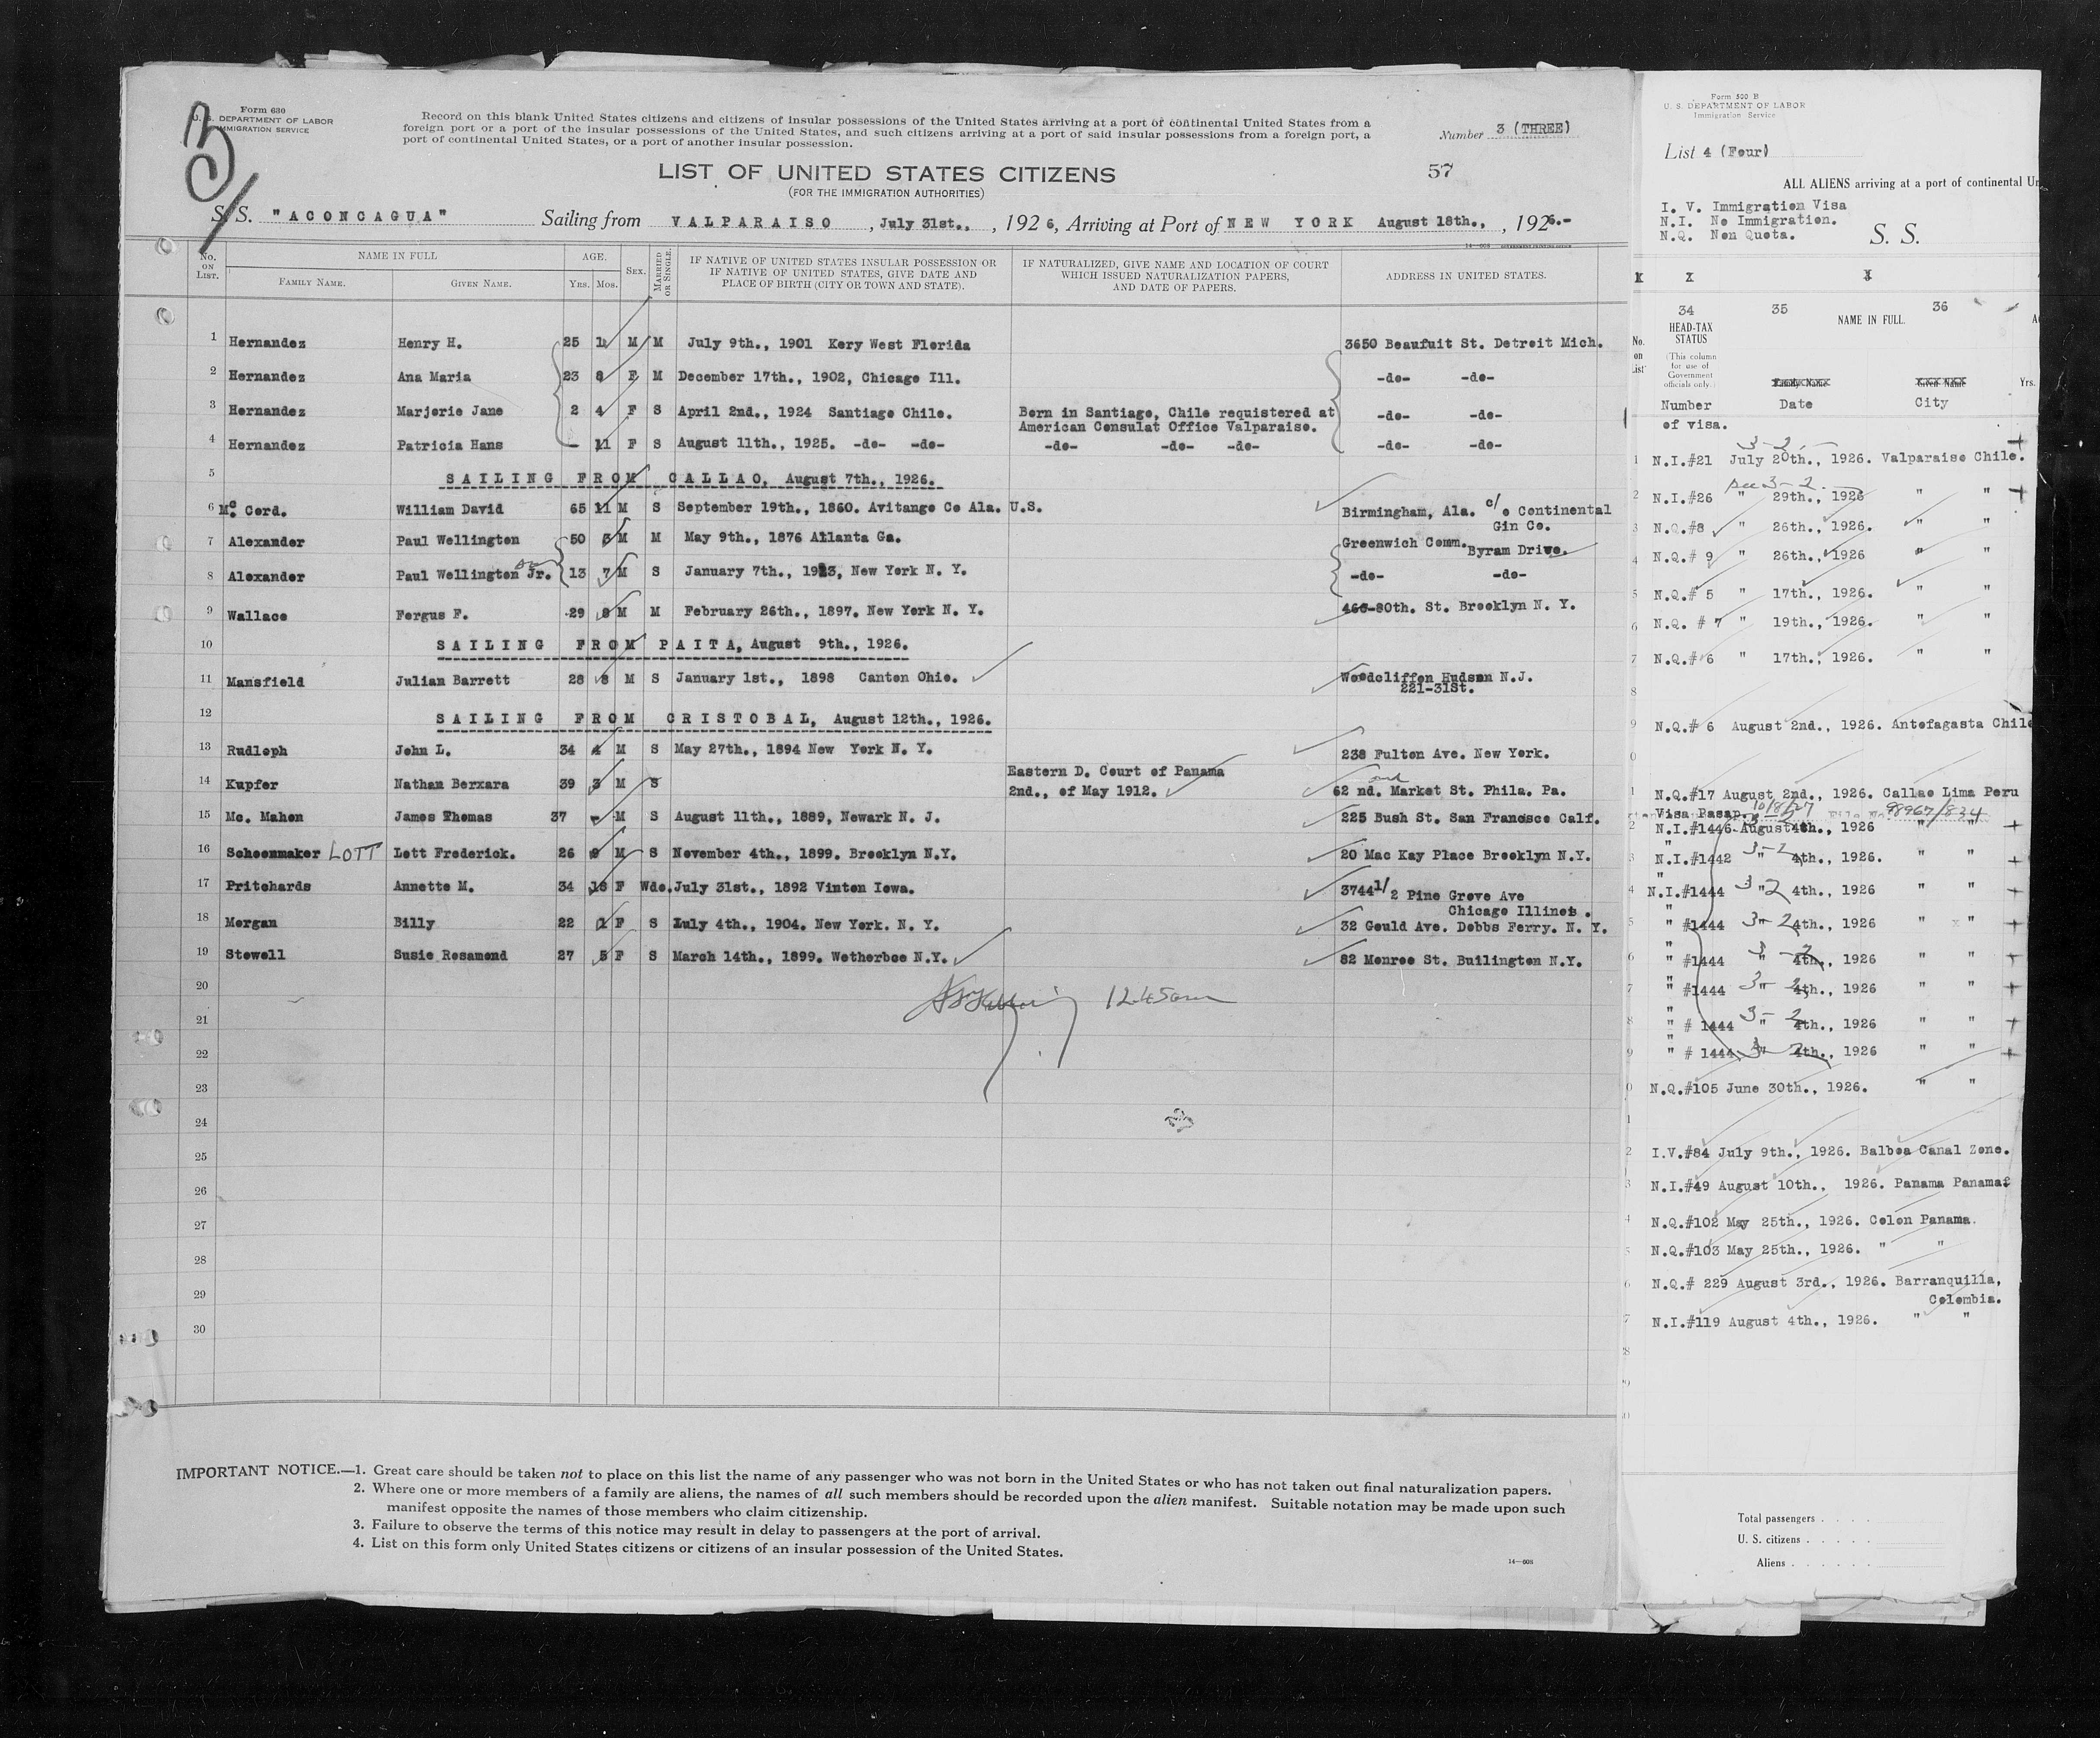 3/
Form 630
U. S. DEPARTMENT OF LABOR
IMMIGRATION SERVICE
Record on this blank United States citizens and citizens of insular possessions of the United States arriving at a port of continental United States from a
foreign port or a port of the insular possessions of the United States, and such citizens arriving at a port of said insular possessions from a foreign port, a
port of continental United States, or a port of another insular possession.
Number 3 (THREE)
LIST OF UNITED STATES CITIZENS
(FOR THE IMMIGRATION AUTHORITIES)
57
S. S. "ACONCAGUA" Sailing from VALPARAISO, July 31st., , 192 6, Arriving at Port of NEW YORK August 18th., , 1926.-
14-608 GOVERNMENT PRINTING OFFICE
No. ON LIST. NAME IN FULL AGE. SEX. MARRIED OR SINGLE. IF NATIVE OF UNITED STATES INSULAR POSSESSION OR IF NATIVE OF UNITED STATES, GIVE DATE AND PLACE OF BIRTH (CITY OR TOWN AND STATE). IF NATURALIZED, GIVE NAME AND LOCATION OF COURT WHICH ISSUED NATURALIZATION PAPERS, AND DATE OF PAPERS. ADDRESS IN UNITED STATES.
FAMILY NAME. GIVEN NAME. YRS. MOS.
1 Hernandez Henry H. 25 1 M M July 9th., 1901 Kery West Florida 3650 Beaufuit St. Detroit Mich.
2 Hernandez Ana Maria 23 8 F M December 17th., 1902, Chicago Ill. -do- -do-
3 Hernandez Marjorie Jane 2 4 F S April 2nd., 1924 Santiago Chile. Born in Santiago, Chile requistered at -do- -do-
American Consulat Office Valparaiso.
4 Hernandez Patricia Hans - 11 F S August 11th., 1925. -do- -do- -do- -do- -do- -do- -do-
5 SAILING FROM CALLAO, August 7th., 1926.
6 Mc. Cord. William David 65 11 M S September 19th., 1860. Avitango Co Ala. U.S. Birmingham, Ala. c/o Continental
Gin Co.
7 Alexander Paul Wellington 50 3 M M May 9th., 1876 Atlanta Ga. Greenwich Comm. Byram Drive.
8 Alexander Paul Wellington Jr. 13 7 M S January 7th., 1913, New York N. Y. -do- -do-
9 Wallace Fergus F. 29 M M February 26th., 1897. New York N. Y. 466-80th. St. Brooklyn N. Y.
10 SAILING FROM PAITA, August 9th., 1926.
11 Mansfield Julian Barrett 28 8 M S January 1st., 1898 Canton Ohio. Woodcliffon Hudson N.J.
221-31St.
12 SAILING FROM CRISTOBAL, August 12th., 1926.
13 Rudloph John L. 34 4 M S May 27th., 1894 New York N. Y. 238 Fulton Ave. New York.
14 Kupfer Nathan Berxara 39 3 M S Eastern D. Court of Panama
2nd., of May 1912. 62 nd. and Market St. Phila. Pa.
15 Mc. Mahon James Thomas 37 - M S August 11th., 1889, Newark N. J. 225 Bush St. San Francisco Calf.
16 Schoonmaker LOTT Lott Frederick. 26 9 M S November 4th., 1899. Brooklyn N.Y. 20 Mac Kay Place Brooklyn N.Y.
17 Pritchards Annette M. 34 F Wdo. July 31st., 1892 Vinton Iowa. 3744 1/2 Pine Grove Ave
Chicago Illinois.
18 Morgan Billy 22 1 F S July 4th., 1904. New York. N. Y. 32 Gould Ave. Dobbs Ferry. N. Y.
19 Stowell Susie Rosamond 27 5 F S March 14th., 1899. Wetherbee N.Y. 82 Monroe St. Builington N.Y.
20 12.45am
21
22
23
24
25
26
27
28
29
30
IMPORTANT NOTICE.—1. Great care should be taken not to place on this list the name of any passenger who was not born in the United States or who has not taken out final naturalization papers.
2. Where one or more members of a family are aliens, the names of all such members should be recorded upon the alien manifest. Suitable notation may be made upon such
manifest opposite the names of those members who claim citizenship.
3. Failure to observe the terms of this notice may result in delay to passengers at the port of arrival.
4. List on this form only United States citizens or citizens of an insular possession of the United States.
14—608
Form 500 B
U. S. DEPARTMENT OF LABOR
Immigration Service
List 4 (Four)
ALL ALIENS arriving at a port of continental Un
I. V. Immigration Visa
N.I. No Immigration.
N.Q. Non Quota.
S. S.
X X X
34 35 36
HEAD-TAX STATUS NAME IN FULL.
No. on List (This column for use of Government officials only.) Family Name Given Name Yrs.
Number Date City
of visa.
3-2
1 N.I.#21 July 20th., 1926. Valparaiso Chile.
3-2.
2 N.I.#26 " 29th., 1926 " "
3 N.Q.#8 " 26th., 1926. " "
4 N.Q.# 9 " 26th., 1926 " "
5 N.Q.# 5 " 17th., 1926. " "
6 N.Q. # 7 " 19th., 1926. " "
7 N.Q.# 6 " 17th., 1926. " "
8
9 N.Q.# 6 August 2nd., 1926. Antofagasta Chile
0
1 N.Q.#17 August 2nd., 1926. Callao Lima Peru
Visa Pasap. 10/8/27 File No 98967/834
2 N.I.#1446 August 4th., 1926 " "
3 N.I.#1442 3-2 " 4th., 1926. " "
4 N.I.#1444 3 " 2 4th., 1926 " "
5 " #1444 3-2 4th., 1926 " "
6 " #1444 3-2 4th., 1926 " "
7 " #1444 3-2 4th., 1926 " "
8 " # 1444 3-2 4th., 1926 " "
9 " # 1444 3-2 4th., 1926 " "
0 N.Q.#105 June 30th., 1926. " "
1
2 I.V.#84 July 9th., 1926. Balboa Canal Zone.
3 N.I.#49 August 10th., 1926. Panama Panama
4 N.Q.#102 May 25th., 1926. Colon Panama.
5 N.Q.#103 May 25th., 1926. " "
6 N.Q.# 229 August 3rd., 1926. Barranquilla,
Colombia.
7 N.I.#119 August 4th., 1926. " "
28
Total passengers . . . .
U. S. citizens . . . . .
Aliens . . . . . .